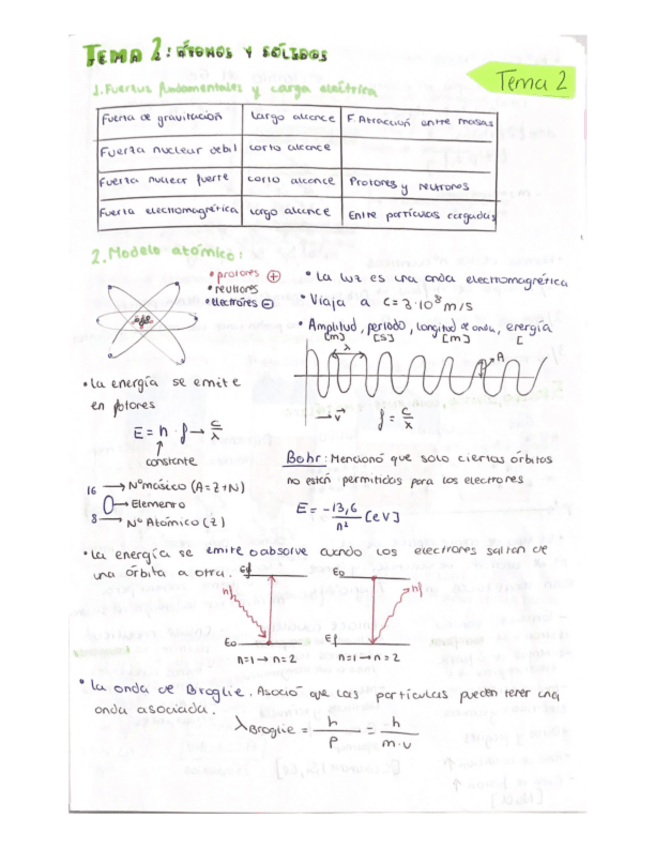 TEMA 2: ÁTOMOS Y SÓLIDOS
Tema 2
1. Fuerzas fundamentales y carga eléctrica
Fuerza de gravitación | Largo alcance | F. Atracción entre masas
Fuerza nuclear debil | corto alcance
Fuerza nuclear fuerte | corto alcance | Protones y neutrones
Fuerza electromagnética | Largo alcance | Entre partículas cargadas
2. Modelo atómico:
• protones ⊕
• neutrones
• electrones ⊖
• La luz es una onda electromagnética
• Viaja a c = 3·10⁸ m/s
• Amplitud, periodo, longitud de onda, energía
[m] [s] [m] [
λ
A
→ v⃗
f = c/λ
• La energía se emite
en fotones
E = h · f → c/λ
constante
Bohr: Mencionó que solo ciertas órbitas
no están permitidas para los electrones
E = -13,6/n² [eV]
16 → Nº másico (A=Z+N)
O → Elemento
8 → Nº Atómico (Z)
• La energía se emite o absolve cuando los electrones saltan de
una órbita a otra.
Ef
E₀
hf
hf
E₀
Ef
n=1 → n=2
n=1 → n=2
• La onda de Broglie. Asoció que las partículas pueden tener una
onda asociada.
λ Broglie = h/P = h/m·v